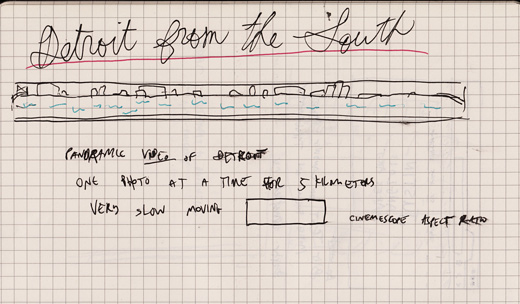 Detroit from the South
PANORAMIC VIDEO OF DETROIT
ONE PHOTO AT A TIME FOR 5 KILOMETERS
VERY SLOW MOVING
CINEMESCOPE ASPECT RATIO